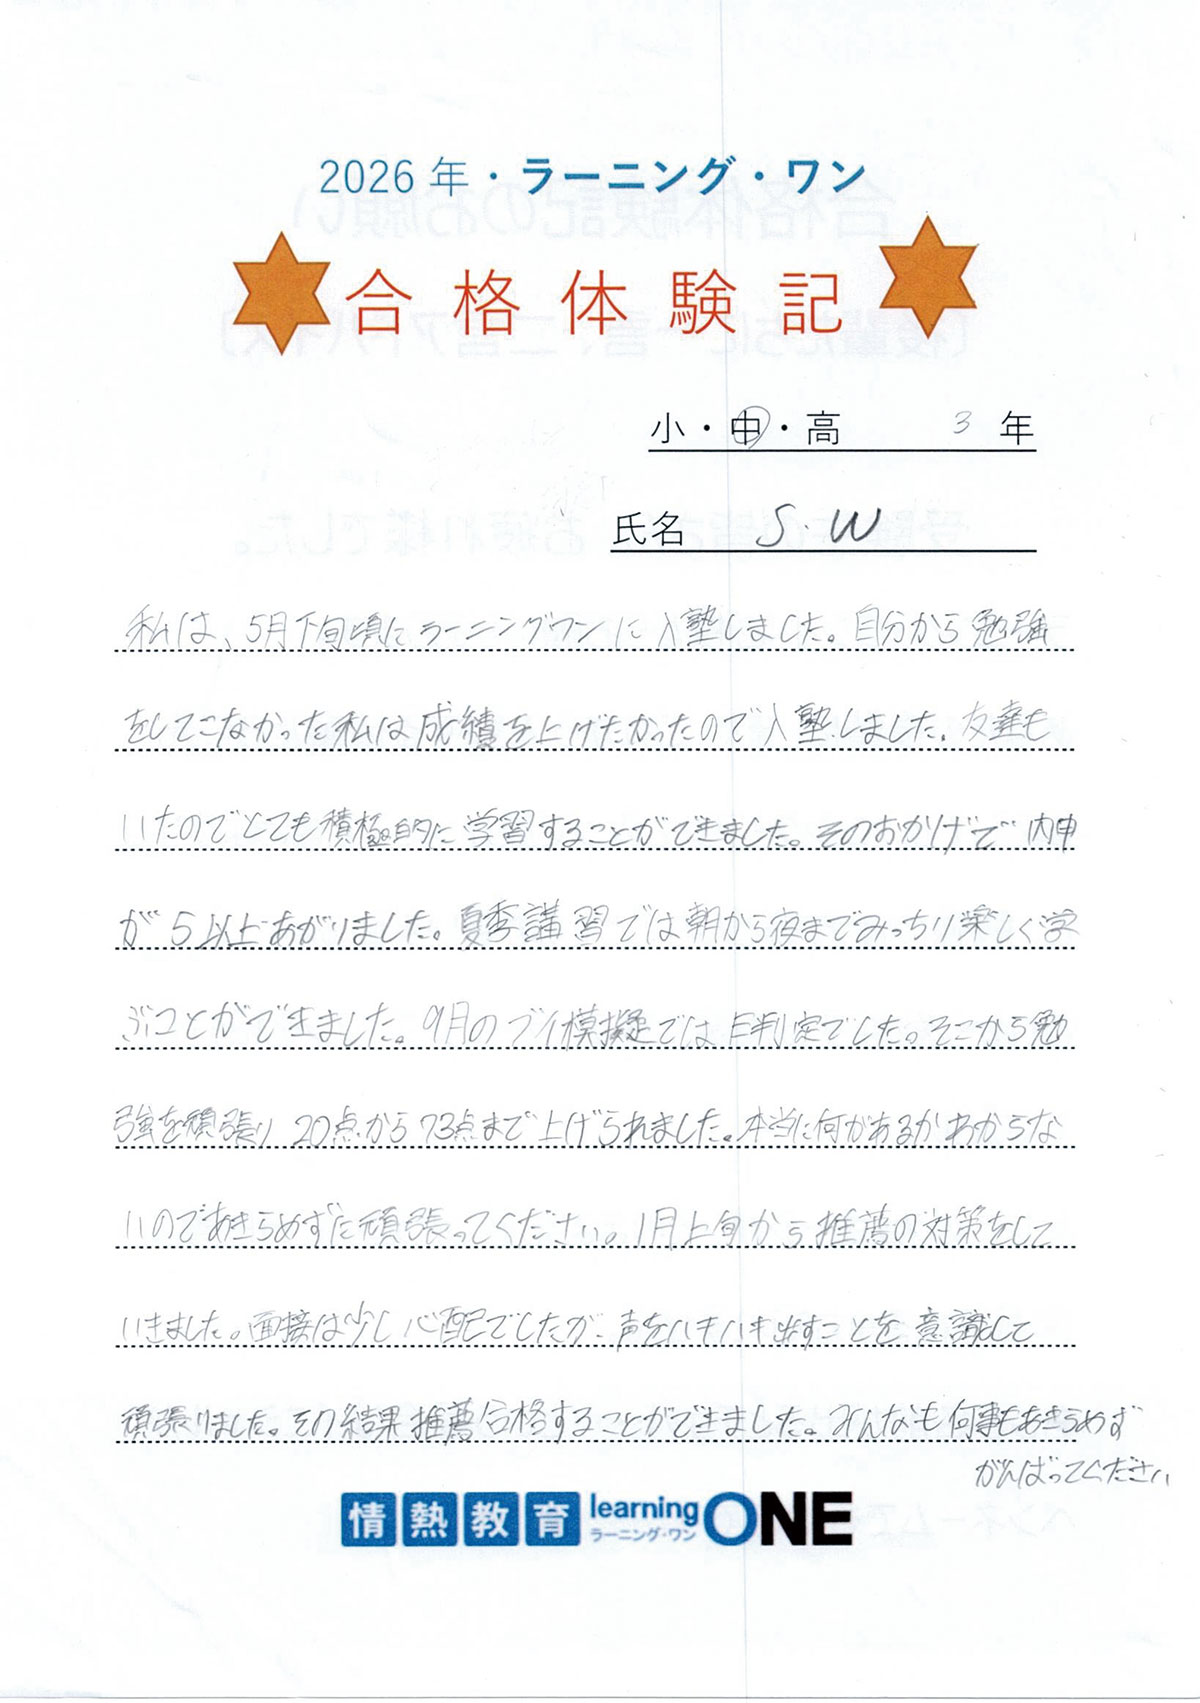 2026年・ラーニング・ワン
合格体験記
小・中・高 3年
氏名 S.W
私は、5月下旬頃にラーニングワンに入塾しました。自分から勉強
をしてこなかった私は成績を上げたかったので入塾しました。友達も
いたのでとても積極的に学習することができました。そのおかげで内申
が5以上あがりました。夏季講習では朝から夜までみっちり楽しく学
ぶことができました。9月のブイ模擬ではE判定でした。そこから勉
強を頑張り20点から73点まで上げられました。本当に何があるかわからな
いのであきらめずに頑張ってください。1月上旬から推薦の対策をして
いきました。面接は少し心配でしたが、声をハキハキ出すことを意識して
頑張りました。その結果推薦合格することができました。みんなも何事もあきらめず
がんばってください
情熱教育 learning ONE
ラーニング・ワン